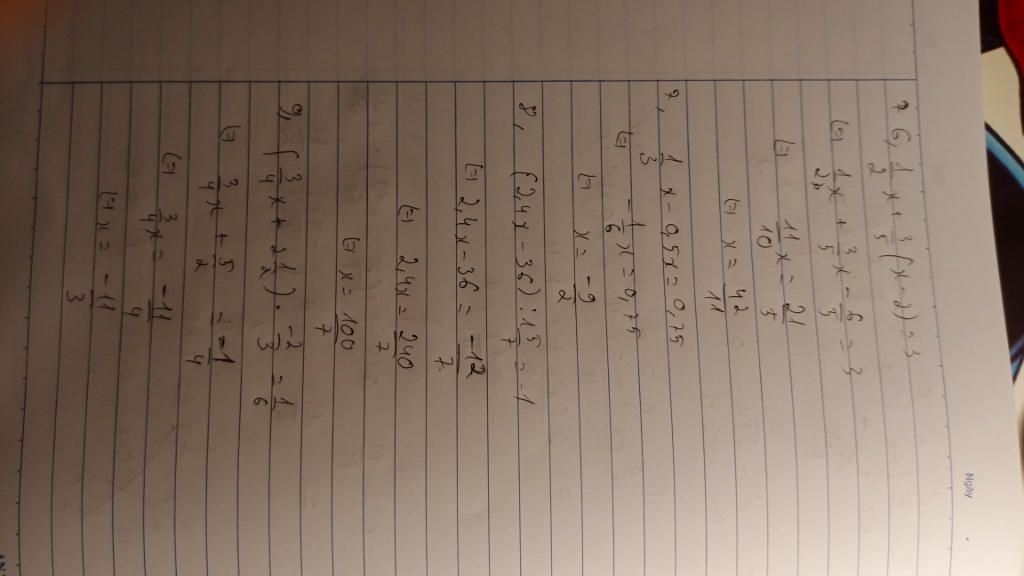 Ngày
6, 1/2 x + 3/5 (x - 2) = 3
(=) 1/2 x + 3/5 x - 6/5 = 3
(=) 11/10 x = 21/5
(=) x = 42/11
7, 1/3 x - 0,5x = 0,75
(=) -1/6 x = 0,75
(=) x = -9/2
8, (2,4x - 36) : 15/7 = -1
(=) 2,4x - 36 = -12/7
(=) 2,4x = 240/7
(=) x = 100/7
9, (3/4 x + 2 1/2) . -2/3 = 1/6
(=) 3/4 x + 5/2 = -1/4
(=) 3/4 x = -11/4
(=) x = -11/3